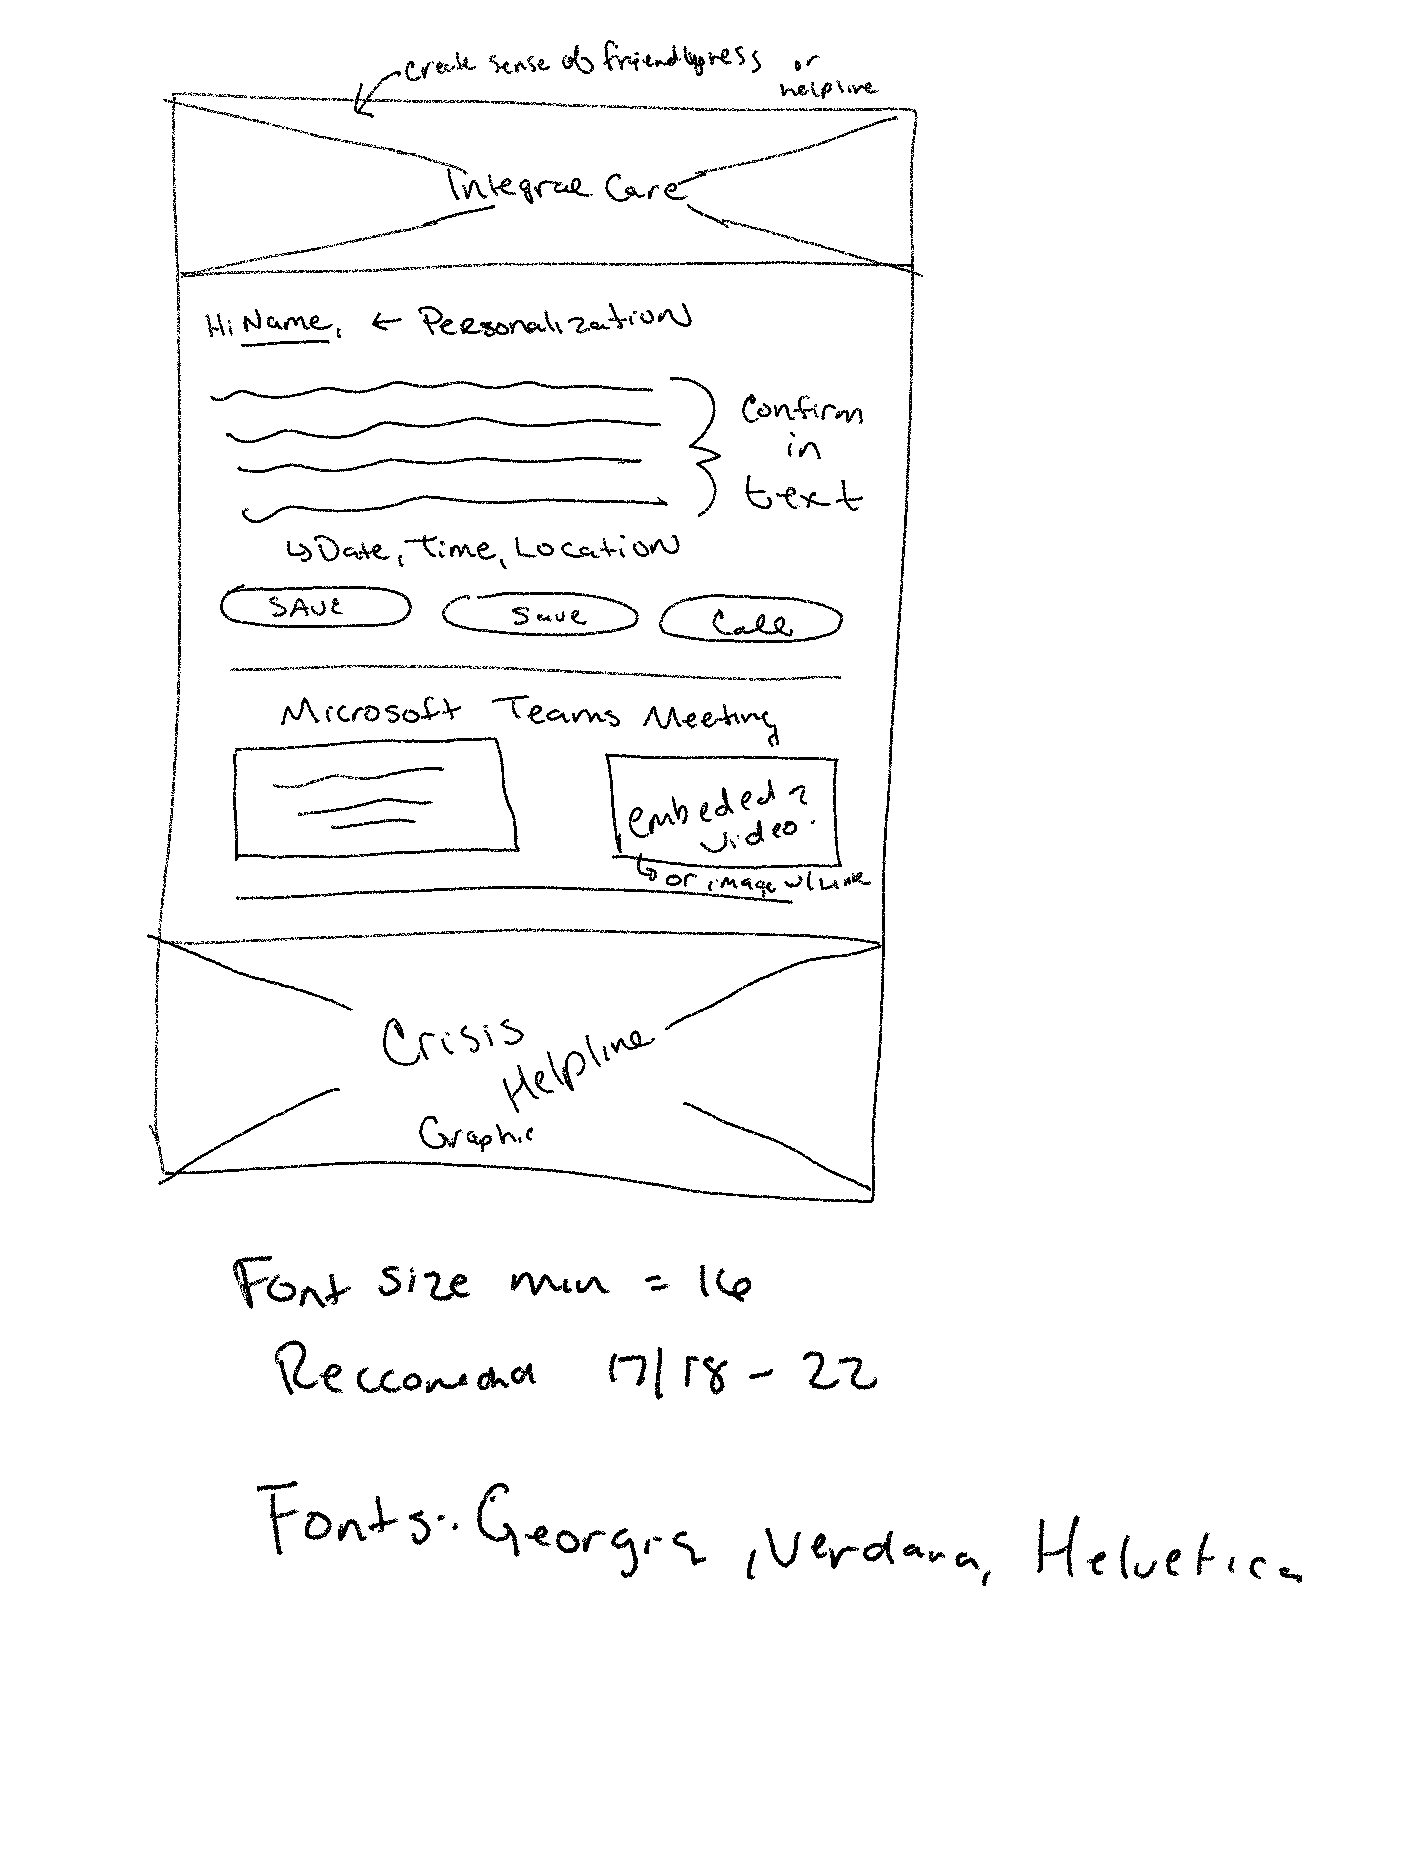 create sense of friendlyness or
helpline
Integral Care
Hi Name, ← Personalization
Confirm
in
text
↳ Date, Time, Location
SAVE
Save
Call
Microsoft Teams Meeting
embeded ?
video
↳ or image w/ Link
Crisis
Helpline
Graphic
Font size min = 16
17/18 - 22
Fonts: Georgia, Verdana, Helvetica